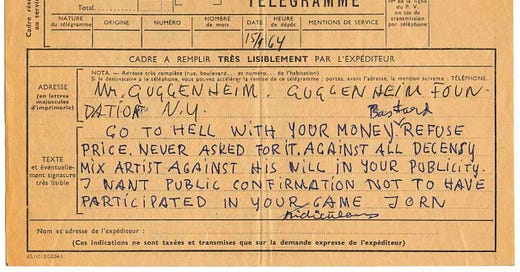 Cadre rése
au service
Total..........
TÉLÉGRAMME
N° de la ligne
du P.V.
en cas de
transmission
par téléphone
NATURE
du télégramme
ORIGINE
NUMÉRO
NOMBRE
de mots
DATE
HEURE
de dépôt
MENTIONS DE SERVICE
15/1 64
CADRE A REMPLIR TRÈS LISIBLEMENT PAR L'EXPÉDITEUR
ADRESSE
(en lettres
majuscules
d'imprimerie)
NOTA. — Adresse très complète (rue, boulevard... et numéro... de l'habitation).
Si le destinataire a le téléphone, vous pouvez accélérer la remise de ce télégramme : portez, avant l'adresse, la mention suivante : TÉLÉPHONE.
Mr. GUGGENHEIM. GUGGENHEIM FOUN
DATION N.Y.
Bastard
GO TO HELL WITH YOUR MONEY. REFUSE
PRICE. NEVER ASKED FOR IT. AGAINST ALL DECENSY
MIX ARTIST AGAINST HIS WILL IN YOUR PUBLICITY.
I WANT PUBLIC CONFIRMATION NOT TO HAVE
PARTICIPATED IN YOUR GAME JORN
ridiculous
TEXTE
et éventuelle-
ment signature
très lisible
Nom et adresse de l'expéditeur :
(Ces indications ne sont taxées et transmises que sur la demande expresse de l'expéditeur)